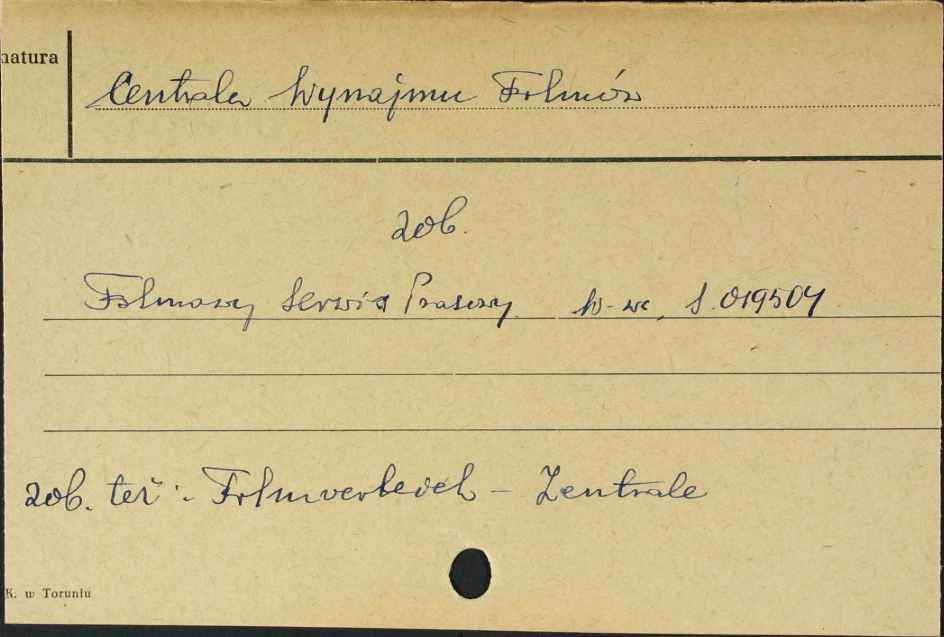 natura
Centrala Wynajmu Filmów
zob.
Filmowy Serwis Prasowy W-wa, S. 019504
zob. też: Filmverleich - Zentrale
K. w Toruniu